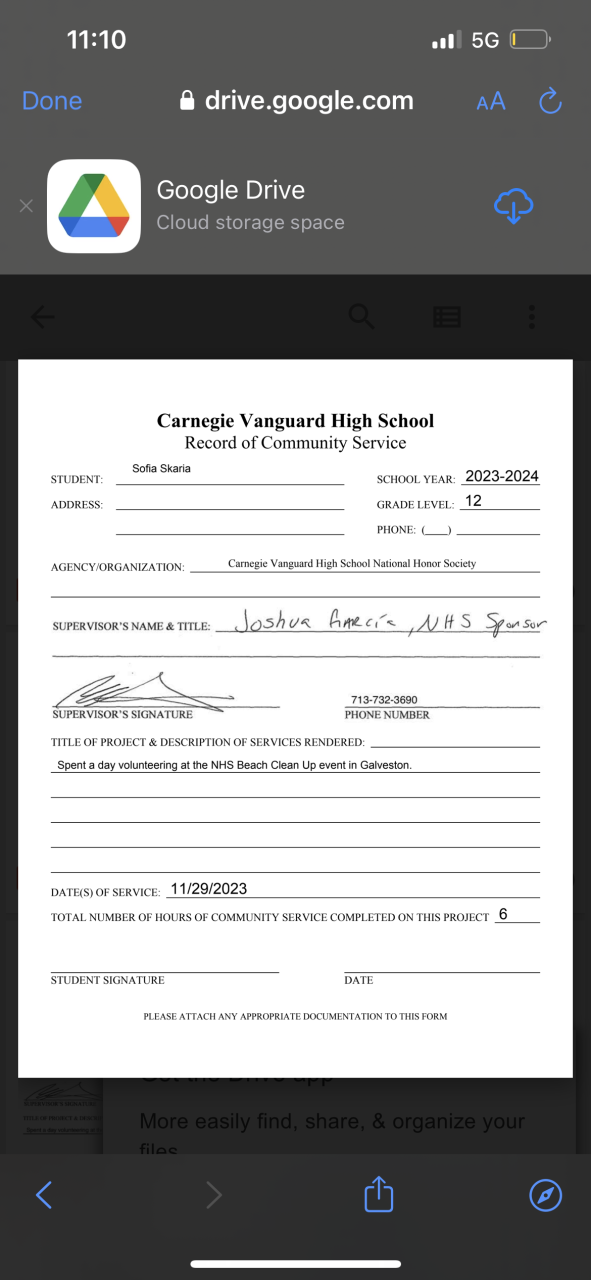 11:10 5G
Done drive.google.com AA
Google Drive
Cloud storage space
Carnegie Vanguard High School
Record of Community Service
STUDENT: Sofia Skaria SCHOOL YEAR: 2023-2024
ADDRESS: GRADE LEVEL: 12
PHONE: (___)
AGENCY/ORGANIZATION: Carnegie Vanguard High School National Honor Society
SUPERVISOR'S NAME & TITLE: Joshua Garcia, NHS Sponsor
713-732-3690
SUPERVISOR'S SIGNATURE PHONE NUMBER
TITLE OF PROJECT & DESCRIPTION OF SERVICES RENDERED:
Spent a day volunteering at the NHS Beach Clean Up event in Galveston.
DATE(S) OF SERVICE: 11/29/2023
TOTAL NUMBER OF HOURS OF COMMUNITY SERVICE COMPLETED ON THIS PROJECT 6
STUDENT SIGNATURE DATE
PLEASE ATTACH ANY APPROPRIATE DOCUMENTATION TO THIS FORM
Get the Drive app
More easily find, share, & organize your
files